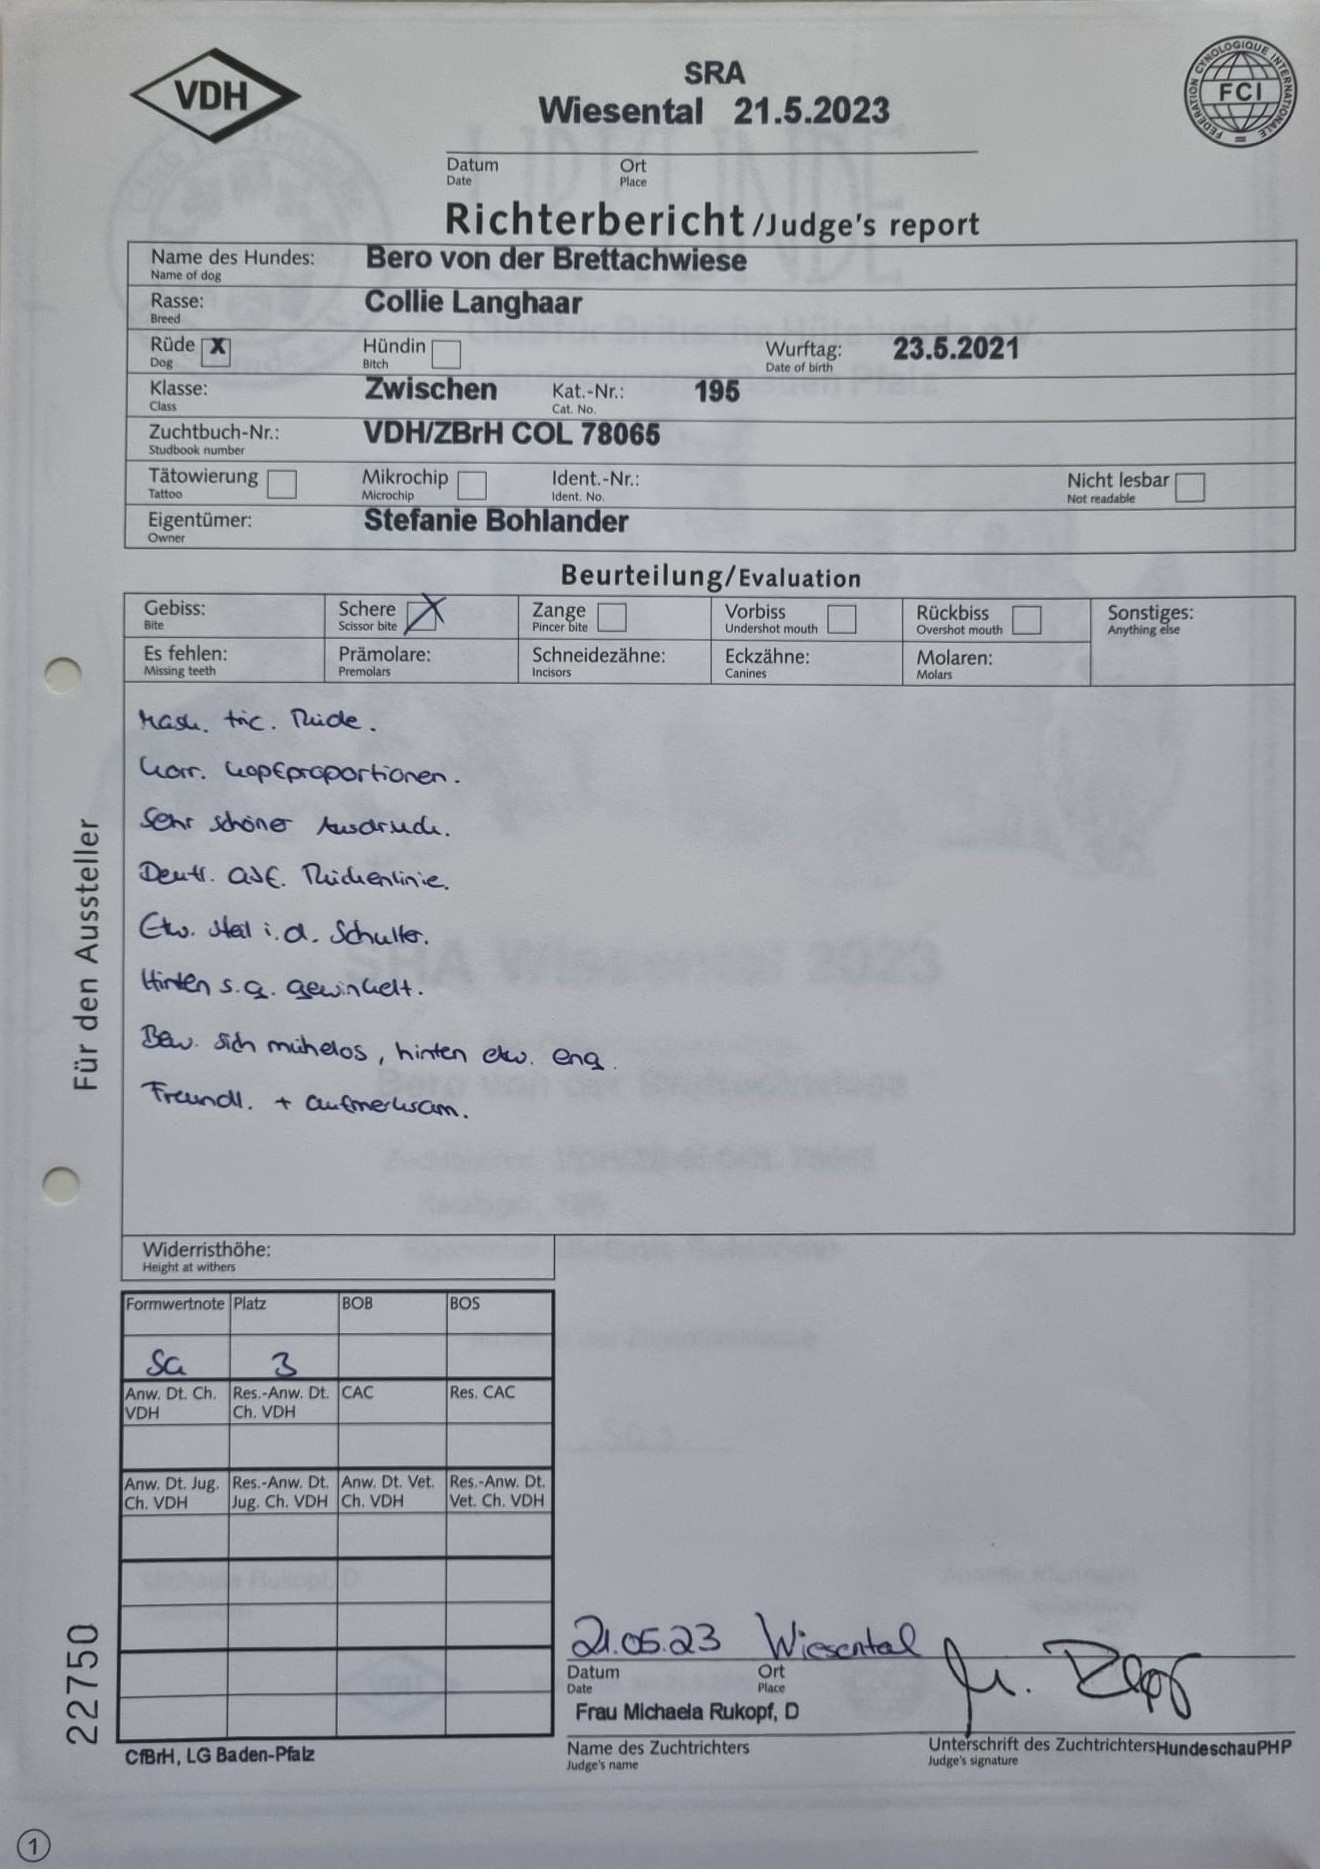 VDH
SRA
Wiesental 21.5.2023
FEDERATION CYNOLOGIQUE INTERNATIONALE
FCI
Datum Ort
Date Place
Richterbericht/Judge's report
Name des Hundes: Bero von der Brettachwiese
Name of dog
Rasse: Collie Langhaar
Breed
Rüde X Hündin Wurftag: 23.5.2021
Dog Bitch Date of birth
Klasse: Zwischen Kat.-Nr.: 195
Class Cat. No.
Zuchtbuch-Nr.: VDH/ZBrH COL 78065
Studbook number
Tätowierung Mikrochip Ident.-Nr.: Nicht lesbar
Tattoo Microchip Ident. No. Not readable
Eigentümer: Stefanie Bohlander
Owner
Beurteilung/Evaluation
Gebiss: Schere X Zange Vorbiss Rückbiss Sonstiges:
Bite Scissor bite Pincer bite Undershot mouth Overshot mouth Anything else
Es fehlen: Prämolare: Schneidezähne: Eckzähne: Molaren:
Missing teeth Premolars Incisors Canines Molars
Mask. tric. Rüde.
Korr. Kopfproportionen.
Sehr schöner Ausdruck.
Deutl. abf. Rückenlinie.
Etw. steil i.d. Schulter.
Hinten s.g. gewinkelt.
Bew. sich mühelos, hinten etw. eng.
Freundl. + aufmerksam.
Für den Aussteller
Widerristhöhe:
Height at withers
Formwertnote Platz BOB BOS
SG 3
Anw. Dt. Ch. Res.-Anw. Dt. CAC Res. CAC
VDH Ch. VDH
Anw. Dt. Jug. Res.-Anw. Dt. Anw. Dt. Vet. Res.-Anw. Dt.
Ch. VDH Jug. Ch. VDH Ch. VDH Vet. Ch. VDH
22750
21.05.23 Wiesental
Datum Ort
Date Place
Frau Michaela Rukopf, D
Name des Zuchtrichters Unterschrift des Zuchtrichters HundeschauPHP
Judge's name Judge's signature
CfBrH, LG Baden-Pfalz
1